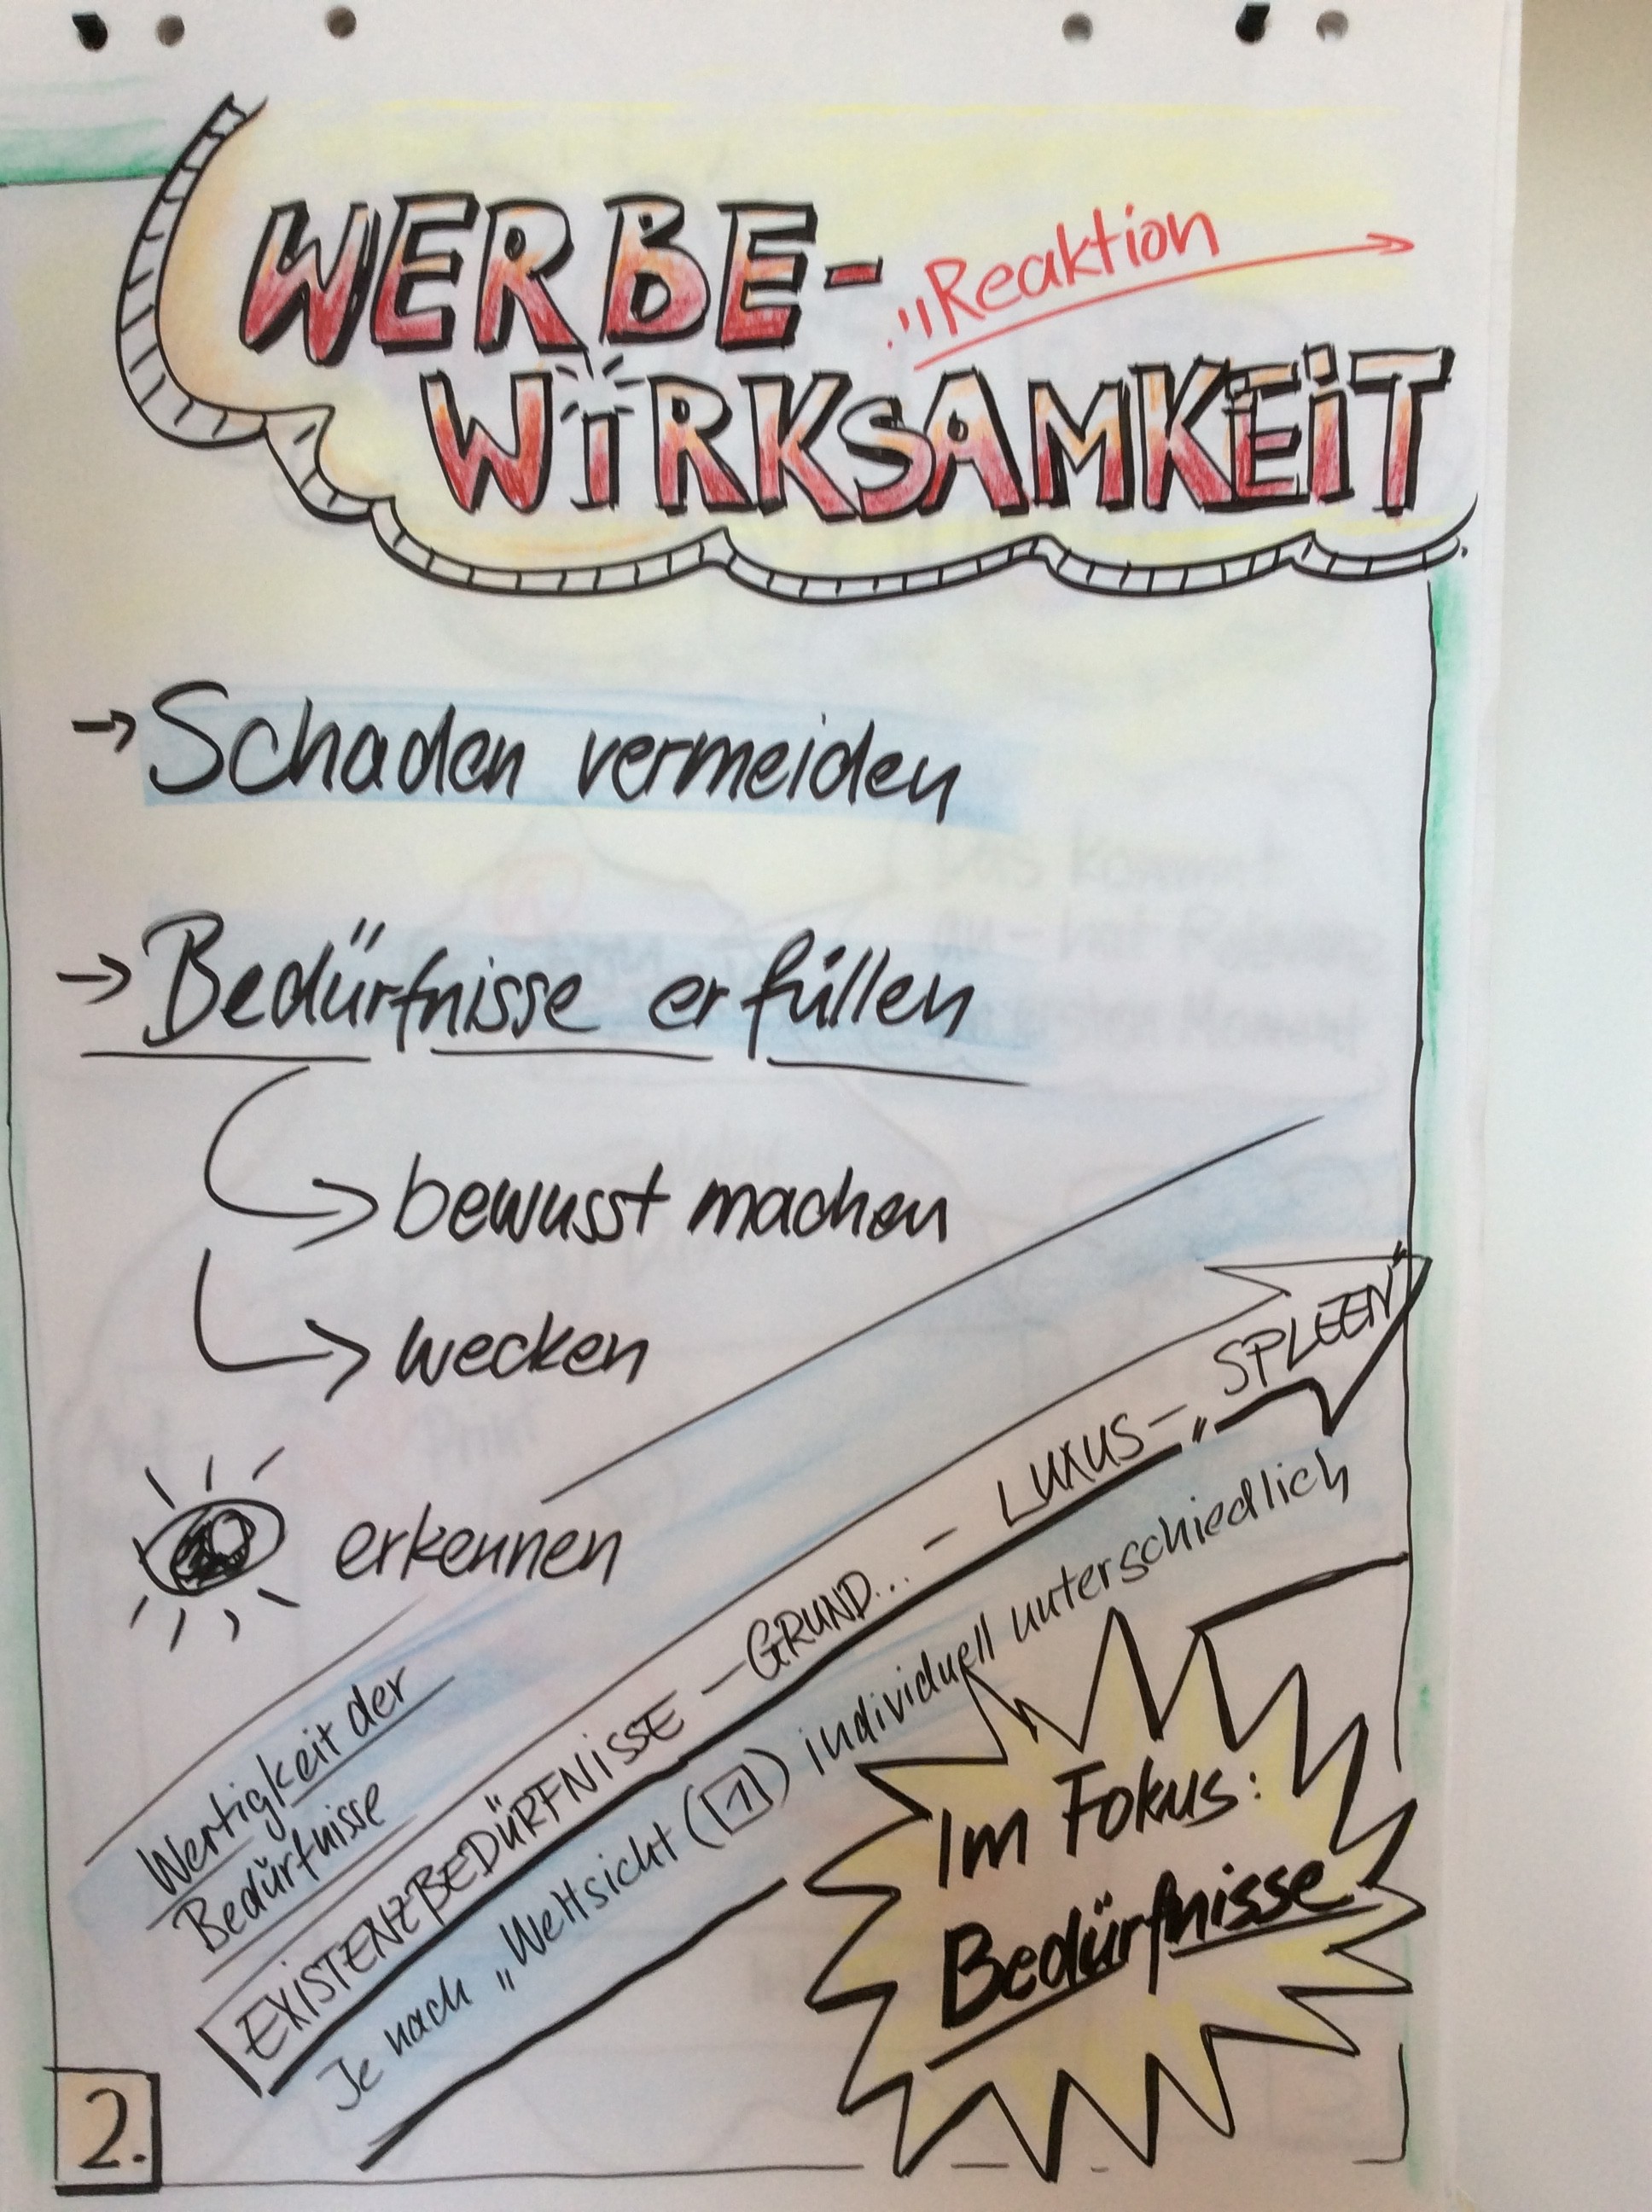 WERBE-
„Reaktion
WIRKSAMKEIT
→ Schaden vermeiden
→ Bedürfnisse erfüllen
→ bewusst machen
→ wecken
erkennen
Wertigkeit der
Bedürfnisse
EXISTENZBEDÜRFNISSE – GRUND... – LUXUS – „SPLEEN“
Je nach „Weltsicht (1) individuell unterschiedlich
Im Fokus:
Bedürfnisse
2.